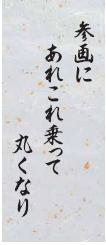 参画に
あれこれ乗って
丸くなり